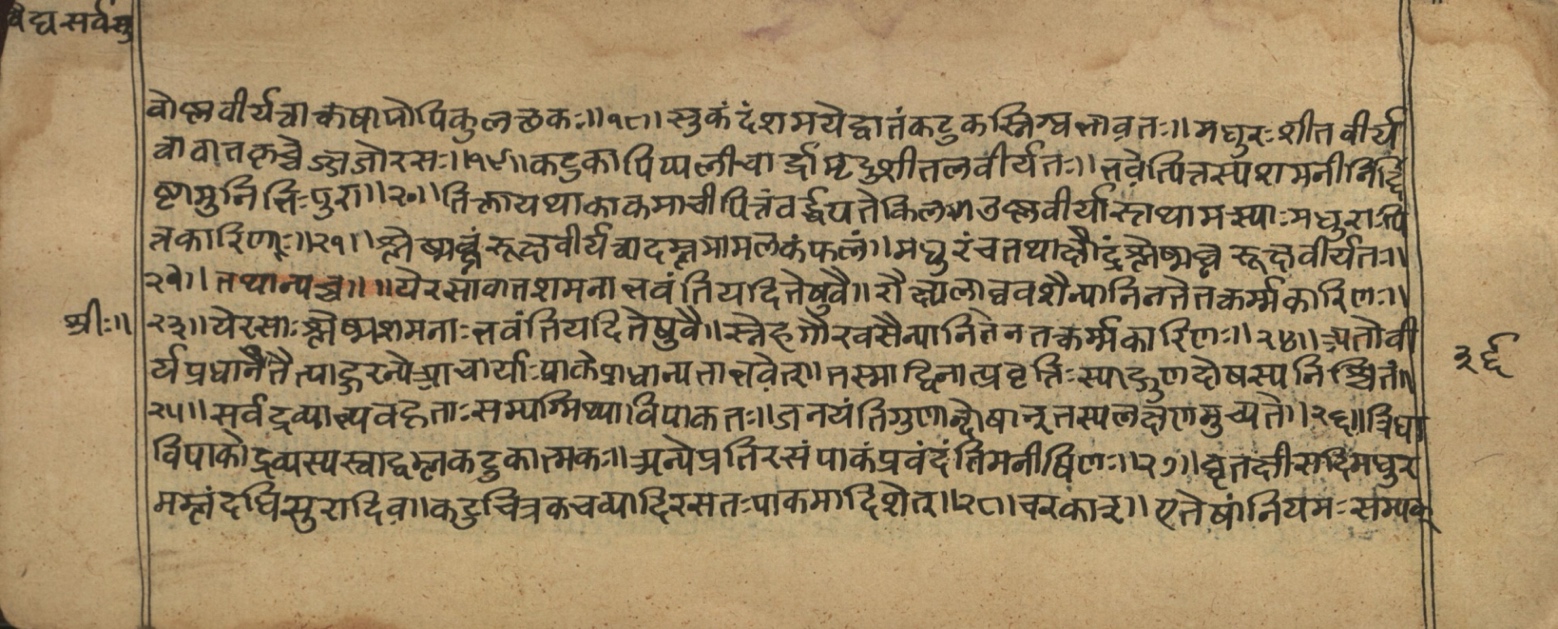 वैद्य सर्वसु
वोष्णवीर्यत्वात्कषायोपिकुलत्थकः॥१८॥स्तुकंदंशमयेद्वातंकटुकस्निग्धभावतः॥मधुरःशीतवीर्य
वावातकृच्चैक्षुजोरसः॥१९॥कटुकापिप्पलीचार्द्रामृदुशीतलवीर्यतः॥भवेत्पित्तस्यशमनीनिर्द्दि
ष्टामुनिभिःपुरा॥२०॥तिक्तायथाकाकमाचीपित्तंवर्द्धयतेकिलाउष्णवीर्यास्तथामस्याःमधुराःपि
त्तकारिणः॥२१॥श्लेष्मघ्नंरूक्षवीर्यत्वादम्लमामलकंफलं॥मधुरंचतथाक्षौद्रंश्लेष्मघ्नंरूक्षवीर्यतः॥
२२॥तथान्यच्च॥॥येरसावातशमनाभवंतियदितेषुवै॥रौक्ष्यलाघवशैत्यानिनतेतत्कर्म्मकारिणः॥
श्रीः॥
२३॥येरसाःश्लेष्मशमनाःभवंतियदितेषुवै॥स्नेहगौरवसैत्यानितेनतत्कर्म्मकारिणः॥२४॥अतोवी
३६
र्यप्रधानैतैत्याहुरन्येआचार्याःपाकेप्राधान्यताभवेत्॥तस्माद्विनात्प्रवृत्तिःस्याद्गुणदोषस्यनिश्चितं॥
२५॥सर्वद्रव्याण्यवहृताःसम्यग्मिथ्याविपाकतः॥जनयंतिगुणान्दोषान्तस्यलक्षणमुच्यते॥२६॥त्रिधा
विपाकोद्रव्यस्यस्वाद्वम्लकटुकात्मकः॥अन्येप्रतिरसंपाकंप्रवंदंतिमनीषिणः॥२७॥घृतक्षीरादिमधुर
मम्लंदधिसुरादिव॥कटुचित्रकचव्यादिरसतःपाकमादिशेत्॥२८॥चरकात्॥एतेषांनियमःसम्यक्